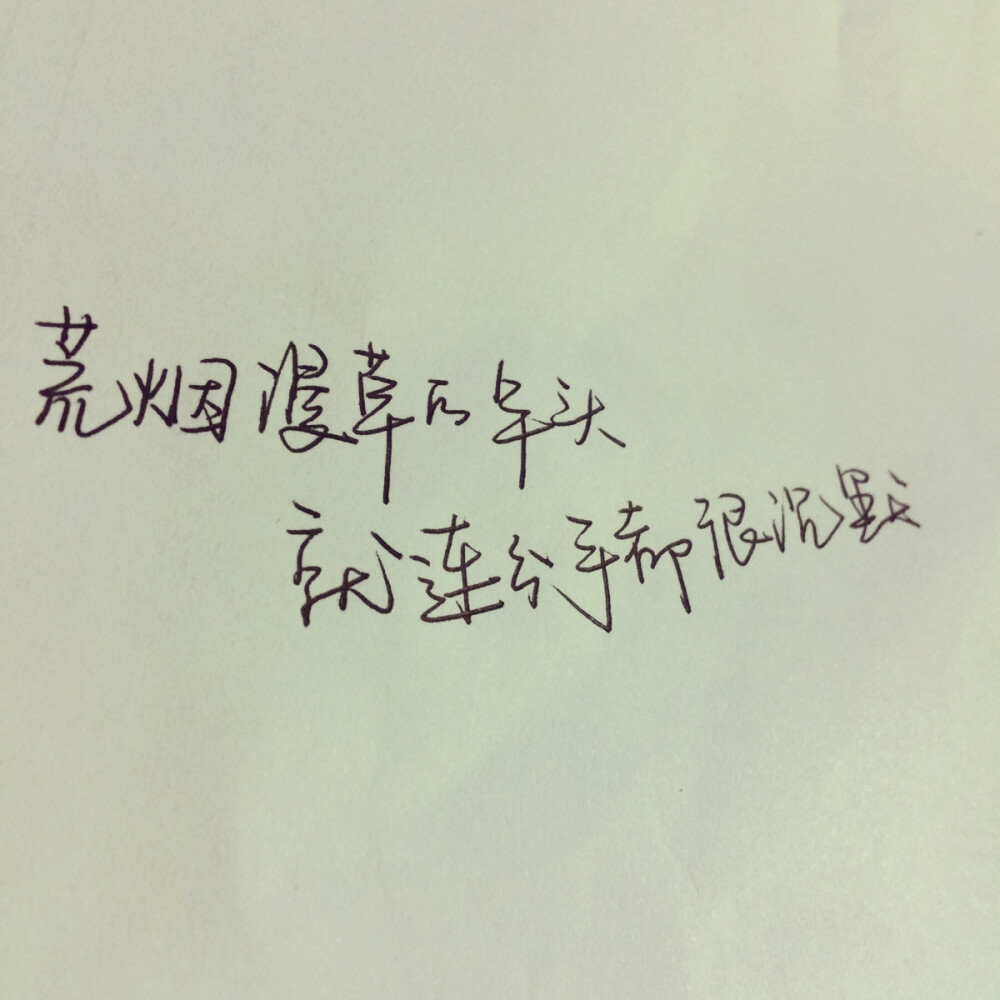 荒烟漫草的年头
就连分手都很沉默